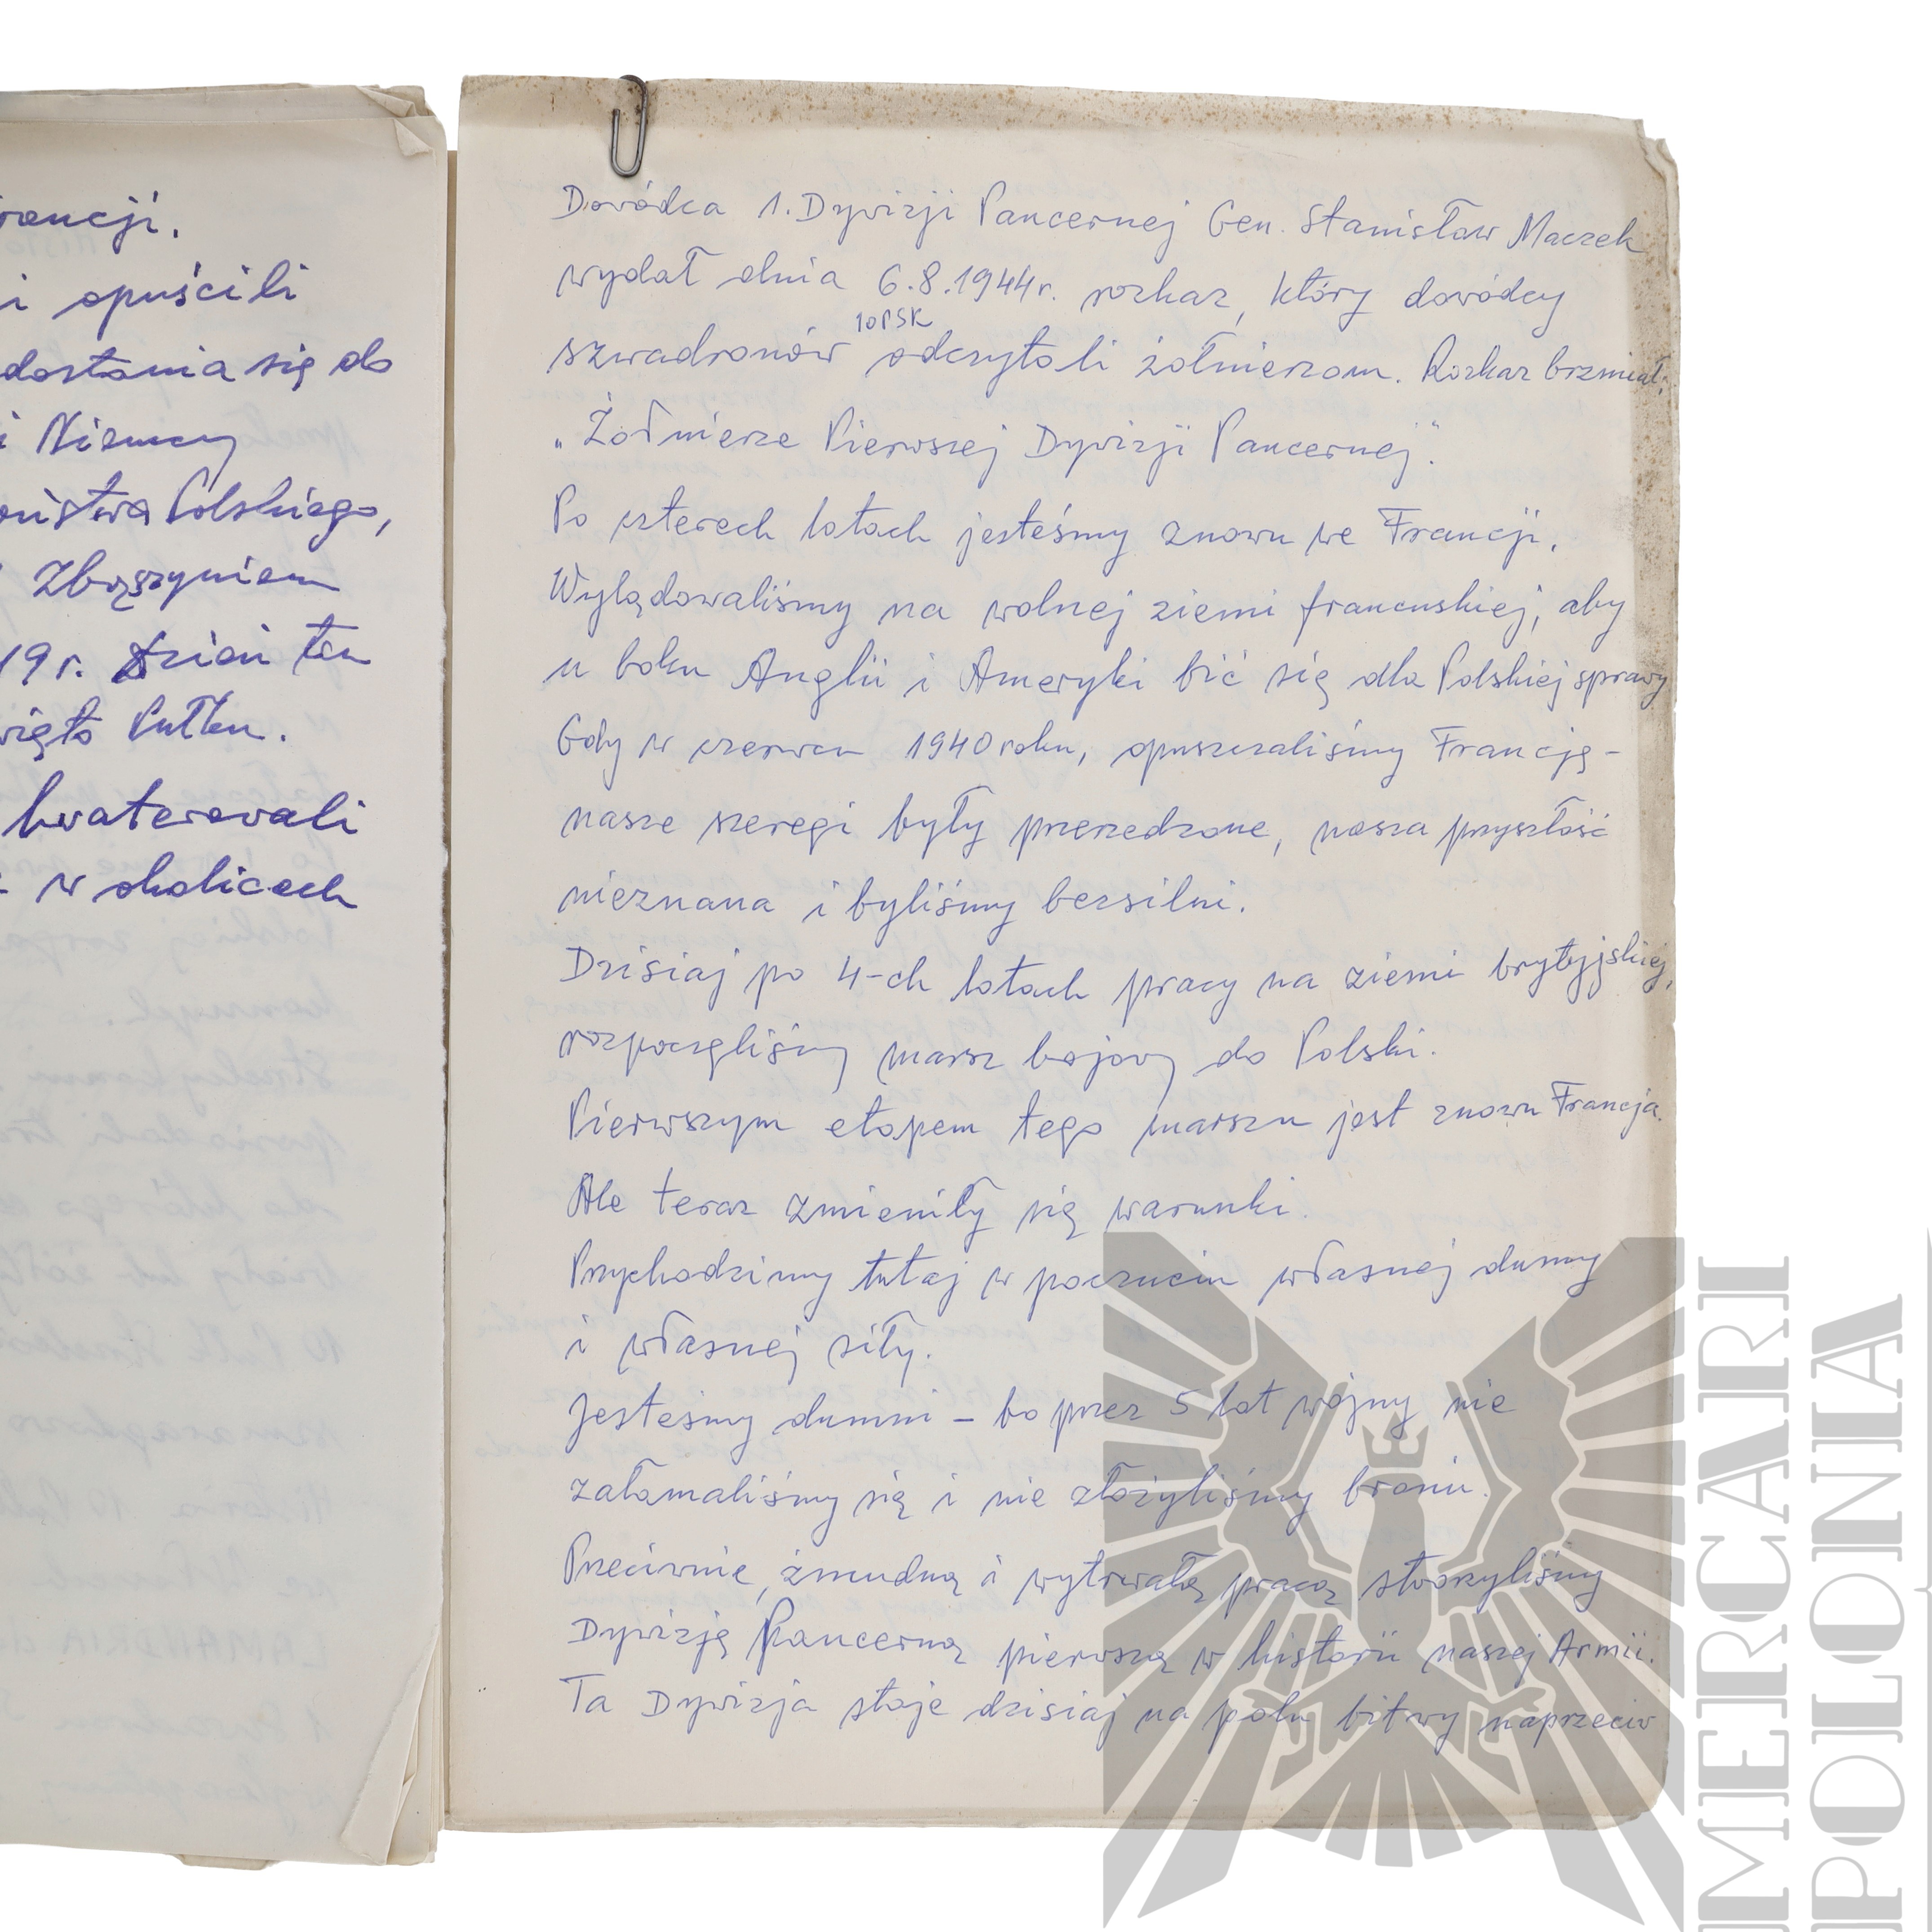 rancji.
i opuścili
dostania się do
i Niemcy
Polskiego,
Zbąszyniem
19 r. Dzień ten
święto Pułku.
kwaterowali
w okolicach
Dowódca 1. Dywizji Pancernej Gen. Stanisław Maczek
wydał dnia 6.8.1944 r. rozkaz, który dowódcy
szwadronów 10PSK odczytali żołnierzom. Rozkaz brzmiał:
„Żołnierze Pierwszej Dywizji Pancernej".
Po czterech latach jesteśmy znowu we Francji.
Wylądowaliśmy na wolnej ziemi francuskiej, aby
u boku Anglii i Ameryki bić się dla Polskiej sprawy
Gdy w czerwcu 1940 roku, opuszczaliśmy Francję –
nasze szeregi były przerzedzone, nasza przyszłość
nieznana i byliśmy bezsilni.
Dzisiaj po 4-ch latach pracy na ziemi brytyjskiej,
rozpoczęliśmy marsz bojowy do Polski.
Pierwszym etapem tego marszu jest znowu Francja.
Ale teraz zmieniły się warunki.
Przychodzimy tutaj w poczuciu własnej dumy
i własnej siły.
Jesteśmy dumni – bo przez 5 lat wojny nie
załamaliśmy się i nie złożyliśmy broni.
Przeciwnie, żmudną i wytrwałą pracą stworzyliśmy
Dywizję Pancerną pierwszą w historii naszej Armii.
Ta Dywizja staje dzisiaj na polu bitwy naprzeciw
IMERCARI
POLONIA